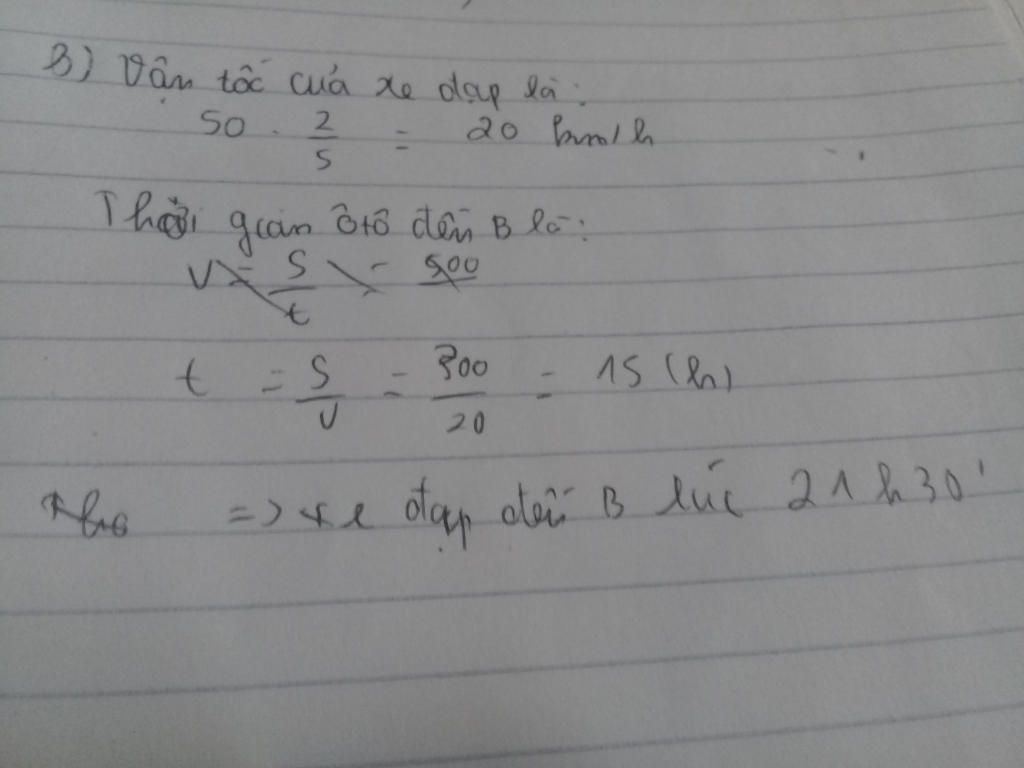 B) Vận tốc của xe đạp là:
50 . 2/5 = 20 km/h
Thời gian ôtô đến B là:
V = S/t = 500
t = S/V = 300/20 = 15 (h)
=> xe đạp đến B lúc 21h30'